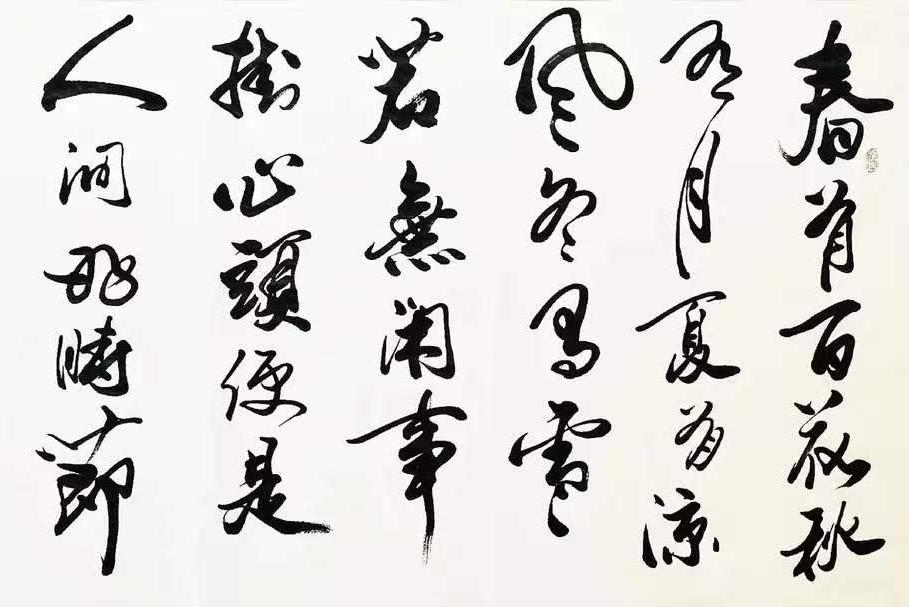 春有百花秋
有月夏有涼
風冬有雪
若無閑事
掛心頭便是
人間好時節